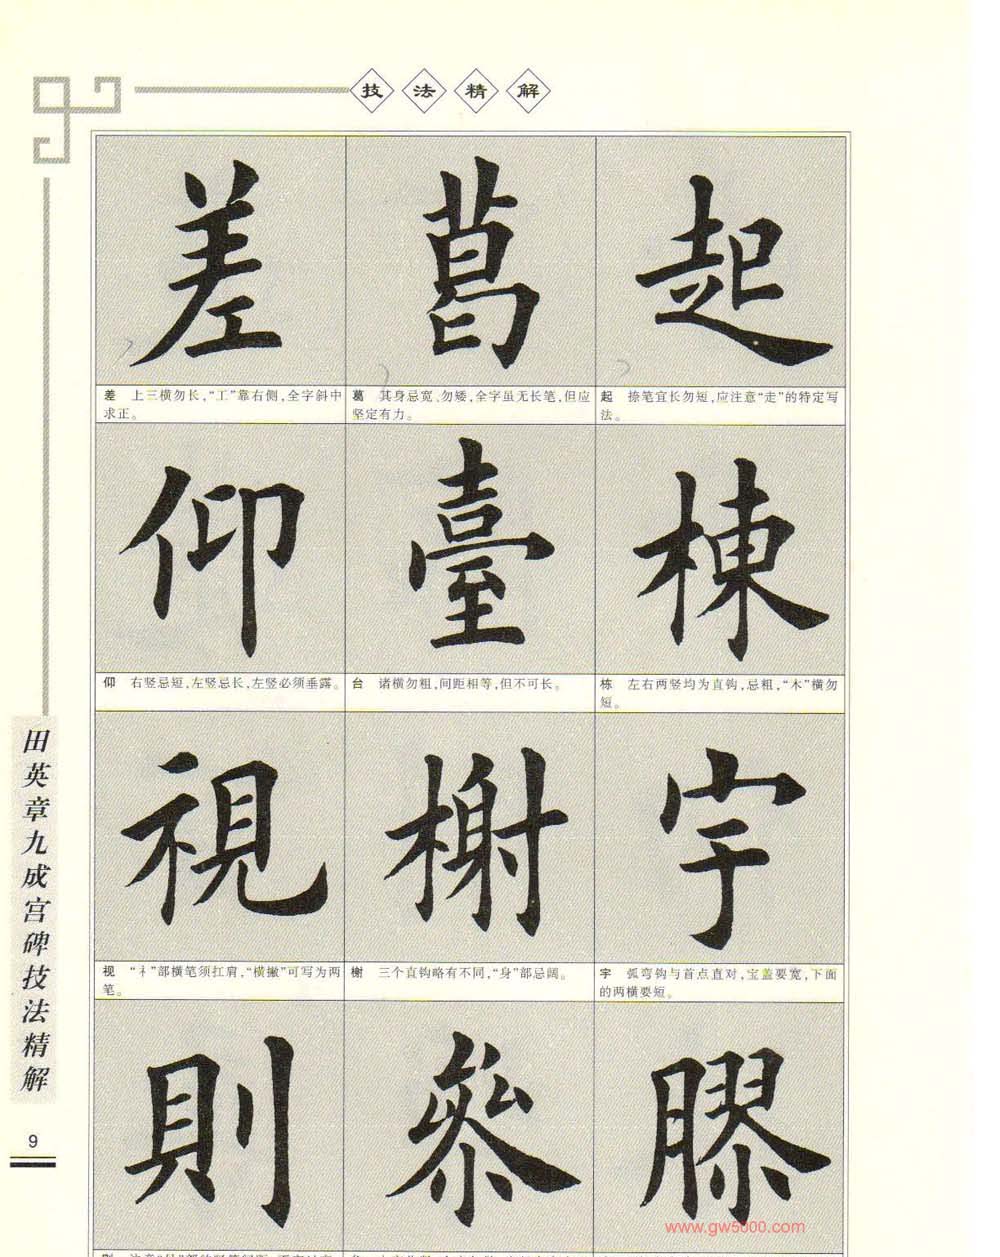 技法精解
差 葛 起
差 上三横勿长,“工”靠右侧,全字斜中
求正。
葛 其身忌宽、勿矮,全字虽无长笔,但应
坚定有力。
起 捺笔宜长勿短,应注意“走”的特定写
法。
仰 臺 棟
仰 右竖忌短,左竖忌长,左竖必须垂露。
台 诸横勿粗,间距相等,但不可长。
栋 左右两竖均为直钩,忌粗,“木”横勿
短。
視 榭 宇
视 “礻”部横笔须扛肩,“横撇”可写为两
笔。
榭 三个直钩略有不同,“身”部忌阔。
宇 弧弯钩与首点直对,宝盖要宽,下面
的两横要短。
則 參 膠
田英章九成宫碑技法精解
9
www.gw5000.com